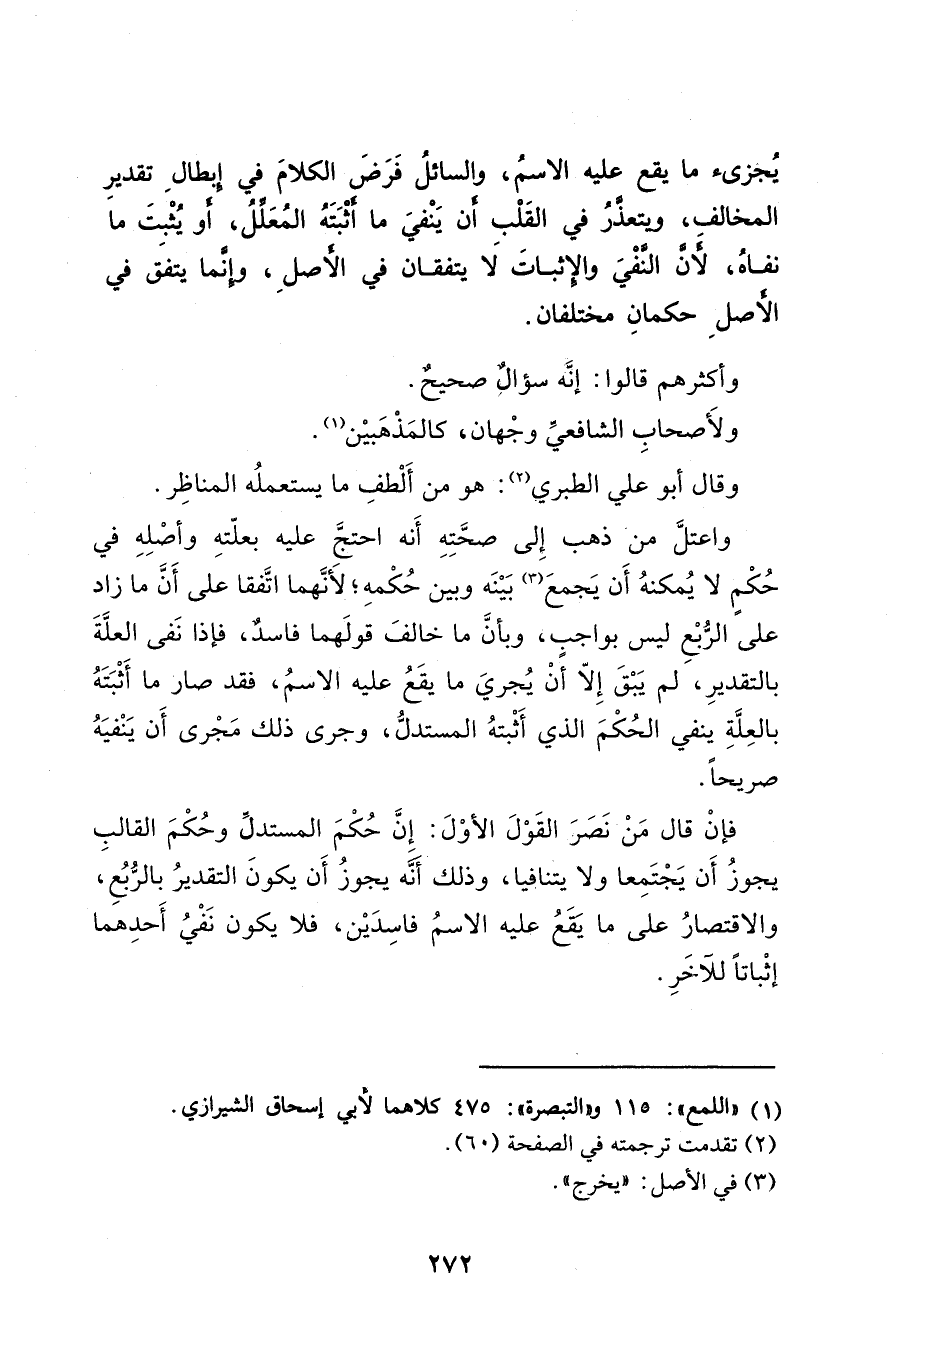 يُجزىء ما يقع عليه الاسمُ، والسائلُ فَرَضَ الكلامَ في إِبطالِ تقديرِ
المخالفِ، ويتعذَّرُ في القَلْبِ أَن يَنْفيَ ما أَثْبَتَهُ المُعَلِّلُ، أَو يُثْبِتَ ما
نفـاهُ، لَأَنَّ النَّفْيَ والإِثبـاتَ لا يتفقـان في الأَصلِ، وإنَّما يتفق في
الأَصلِ حكمانِ مختلفان.
وأكثرهم قالوا: إنَّه سؤالٌ صحيحٌ.
ولَأصحابِ الشافعيِّ وجْهان، كالمَذْهَبَيْن(١).
وقال أبو علي الطبري(٢): هو من أَلْطفِ ما يستعمله المناظِر.
واعتلَّ من ذهب إِلى صحَّتِهِ أَنه احتجَّ عليه بعلّتهِ وأصْلِهِ في
حُكْمٍ لا يُمكنهُ أَن يَجمعَ(٣) بَيْنَه وبين حُكْمهِ؛ لأنَّهما اتَّفقا على أَنَّ ما زاد
على الرُّبْعِ ليس بواجبٍ، وبأنَّ ما خالفَ قولَهما فاسدٌ، فإذا نَفى العلَّةَ
بالتقديرِ، لم يَبْقَ إلاّ أنْ يُجريَ ما يقَعُ عليه الاسمُ، فقد صار ما أَثْبَتَهُ
بالعِلَّةِ ينفي الحُكْمَ الذي أَثْبتهُ المستدلُّ، وجرى ذلك مَجْرى أَن يَنْفيَهُ
صريحاً.
فإنْ قال مَنْ نَصَرَ القَوْلَ الأوْلَ: إنَّ حُكْمَ المستدلِّ وحُكْمَ القالبِ
يجوزُ أَن يَجْتَمِعا ولا يتنافيا، وذلك أَنَّه يجوزُ أَن يكونَ التقديرُ بالرُّبُعِ،
والاقتصارُ على ما يَقَعُ عليه الاسمُ فاسِدَيْن، فلا يكون نَفْيُ أَحدِهما
إثْباتاً للآخَرِ.
(١) «اللمع»: ١١٥ و«التبصرة»: ٤٧٥ كلاهما لأبي إسحاق الشيرازي.
(٢) تقدمت ترجمته في الصفحة (٦٠).
(٣) في الأصل: «يخرج».
٢٧٢